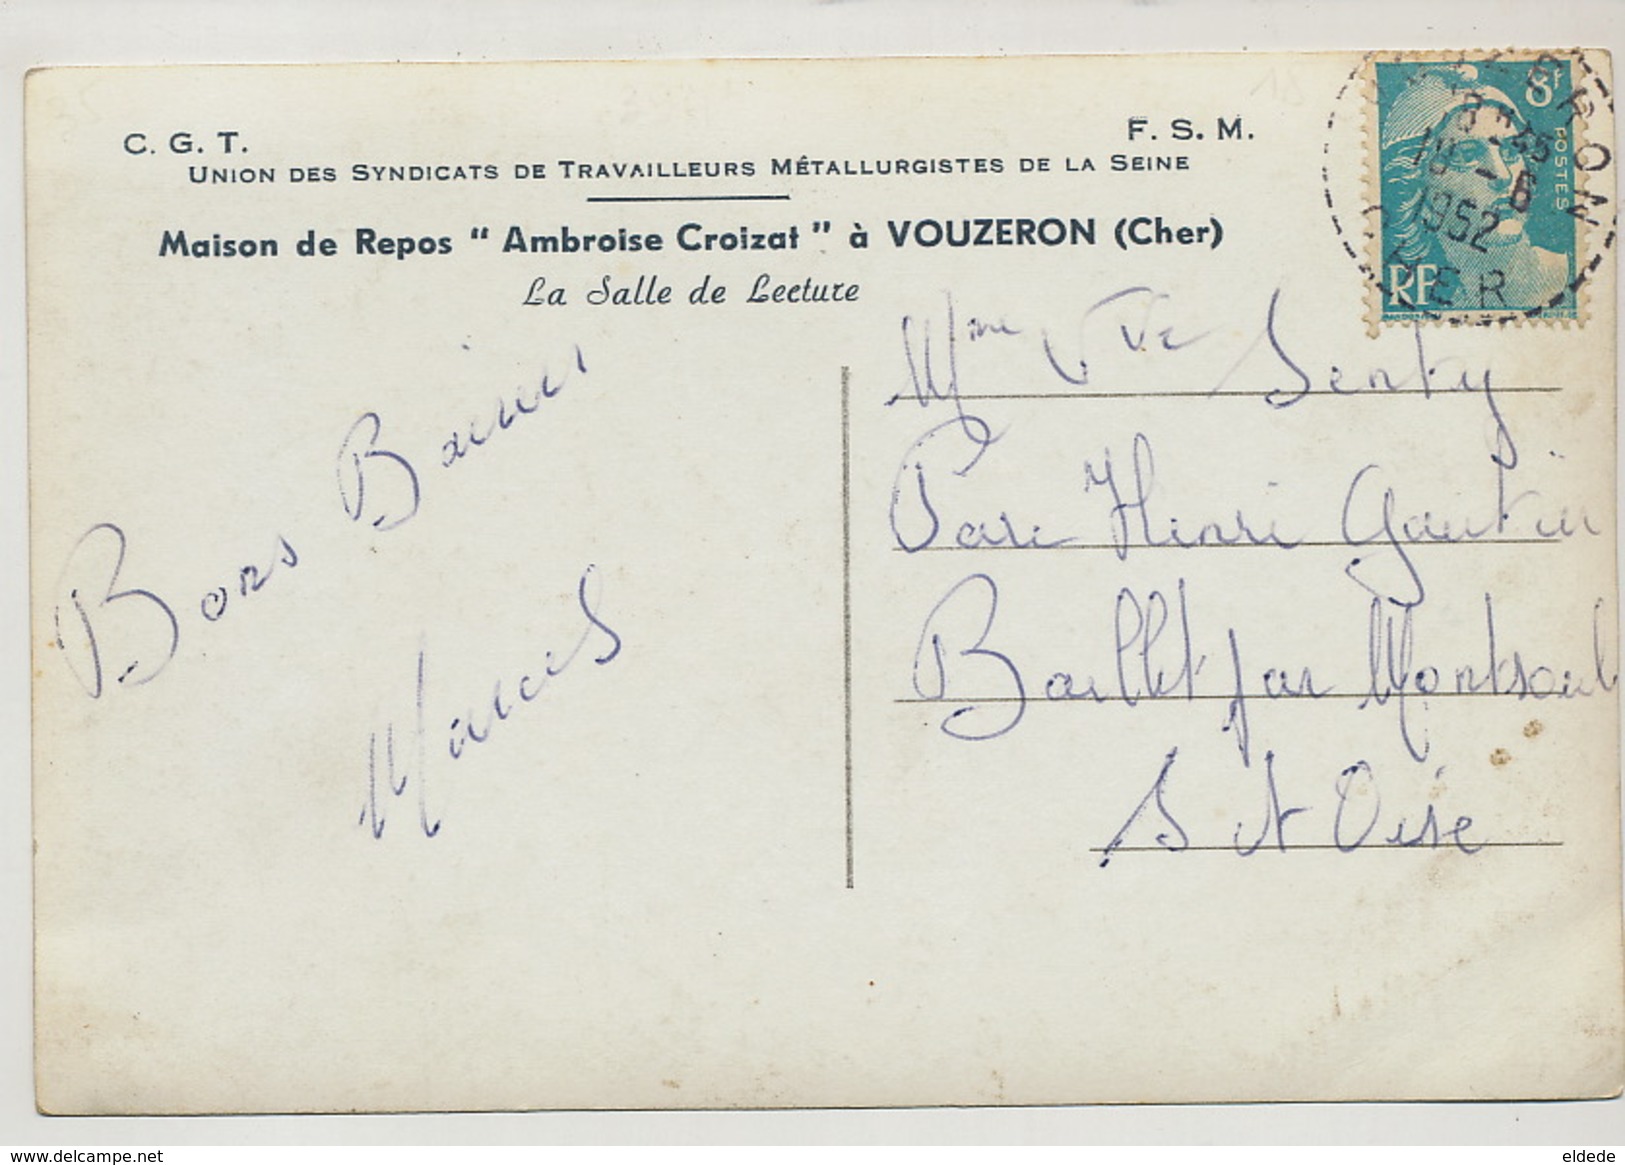 C. G. T.
F. S. M.
UNION DES SYNDICATS DE TRAVAILLEURS MÉTALLURGISTES DE LA SEINE
Maison de Repos " Ambroise Croizat " à VOUZERON (Cher)
La Salle de Lecture
8F
POSTES
RF
VOUZERON
8 H 45
18 - 6
1952
CHER
Bons Baisers
Marcel
Mme Vve Senty
Henri Gautier
Baillet par Montsoult
S et Oise
delcampe.net
eldede